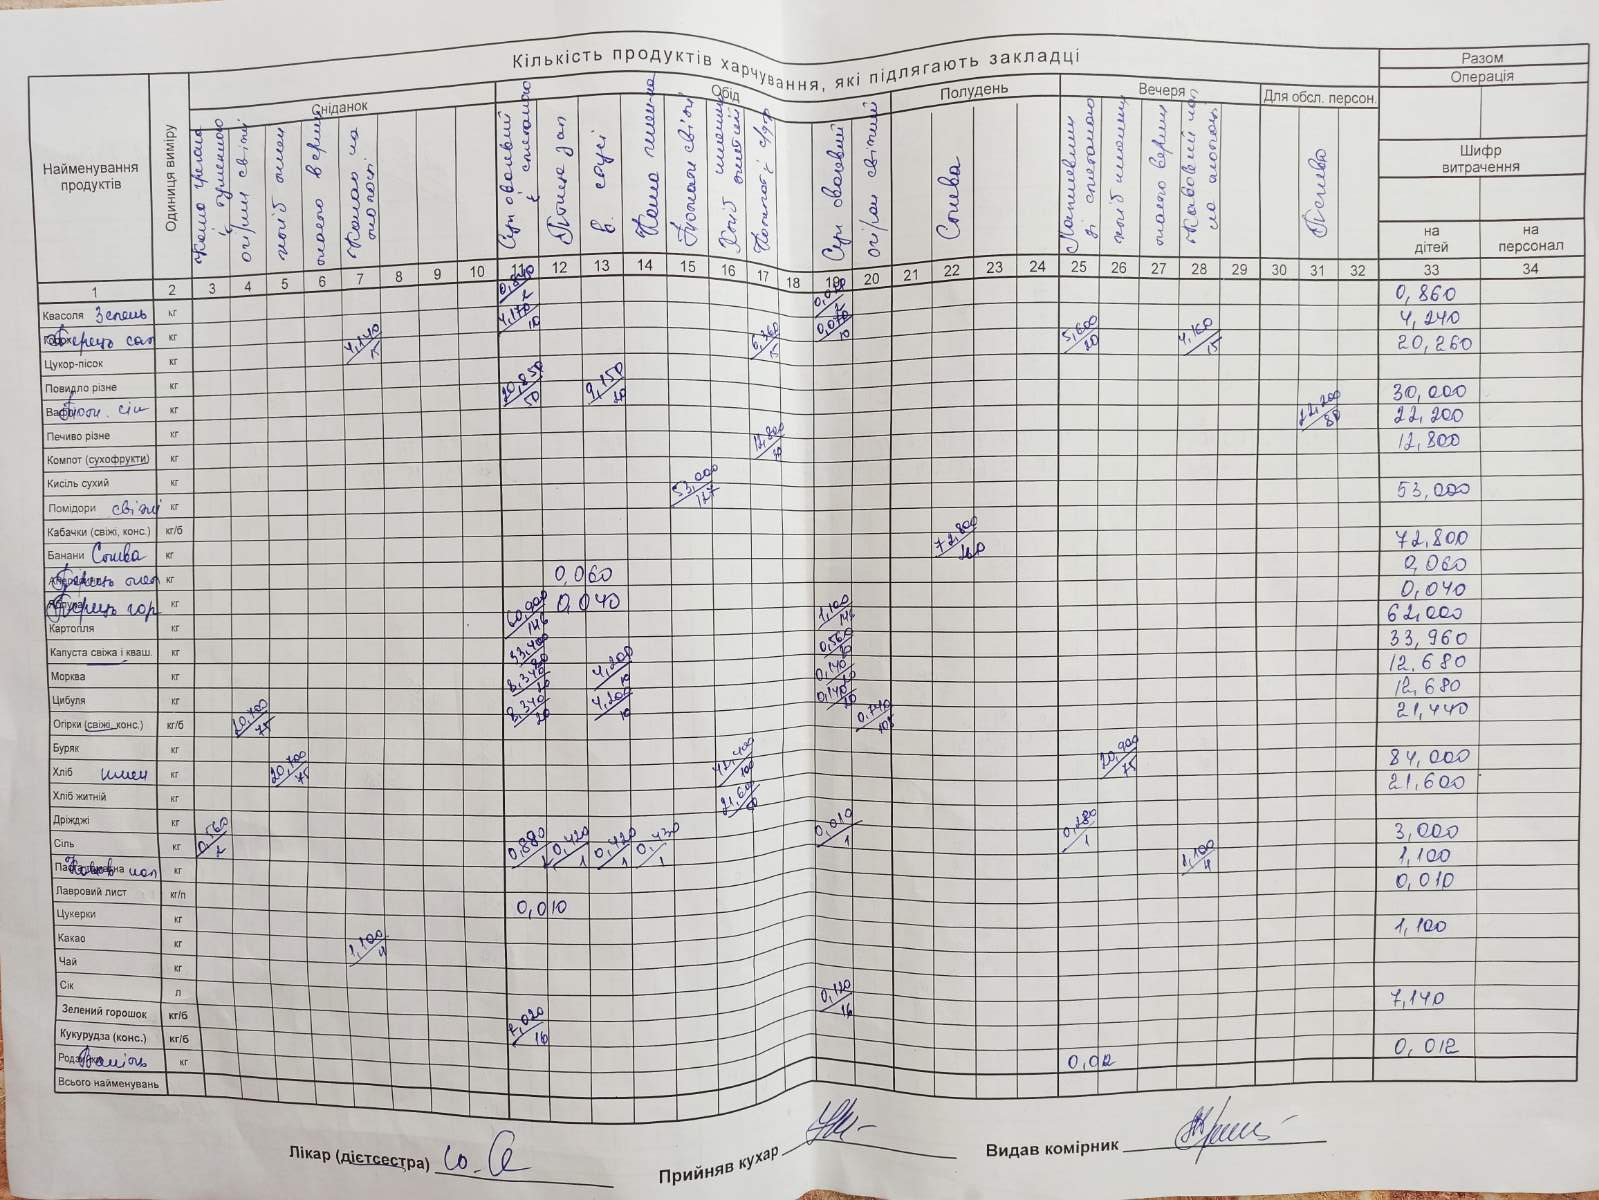 Кількість продуктів харчування, які підлягають закладці
Разом
Операція
Шифр витрачення
Найменування продуктів
Одиниця виміру
Сніданок
Обід
Полудень
Вечеря
Для обсл. персон.
на дітей
на персонал
огірки свіжі
хліб пшен
масло вершк
Какао на молоці
Птиця зап
в соусі
Каша пшен-на
Помідори свіжі
огірки свіжий
Слива
хліб пшенич
масло вершк
Кавовий нап на молоці
Печиво
1 2 3 4 5 6 7 8 9 10 11 12 13 14 15 16 17 18 19 20 21 22 23 24 25 26 27 28 29 30 31 32 33 34
Квасоля Зелень кг 0,840/2 0,860
кг 4,170/10 0,070/10 4,240
Цукор-пісок кг 4,140/15 6,360/15 5,600/20 4,160/15 20,260
Повидло різне кг
кг 20,850/50 9,150/20 30,000
Печиво різне кг 22,200/80 22,200
Компот (сухофрукти) кг 12,800 12,800
Кисіль сухий кг
Помідори свіжі кг 53,000/127 53,000
Кабачки (свіжі, конс.) кг/б
Банани Слива кг 72,800/260 72,800
кг 0,060 0,060
Перець гор кг 0,040 0,040
Картопля кг 60,900/146 1,100/146 62,000
Капуста свіжа і кваш. кг 33,400/80 0,560 33,960
Морква кг 8,340/20 4,200/10 0,140/20 12,680
Цибуля кг 8,340/20 4,200/10 0,140/20 12,680
Огірки (свіжі, конс.) кг/б 20,700/75 0,740 21,440
Буряк кг
Хліб пшен кг 20,700/75 42,400/100 20,900/75 84,000
Хліб житній кг 21,600 21,600
Дріжджі кг
Сіль кг 0,560/2 0,880 0,420/1 0,420/1 0,430/1 0,010/1 0,280/1 3,000
Кавов нап кг 1,100/4 1,100
Лавровий лист кг/п 0,010 0,010
Цукерки кг
Какао кг 1,100/4 1,100
Чай кг
Сік л
Зелений горошок кг/б 7,020/16 0,120/16 7,140
Кукурудза (конс.) кг/б
Ваніль кг 0,012 0,012
Всього найменувань
Лікар (дієтсестра)
Прийняв кухар
Видав комірник